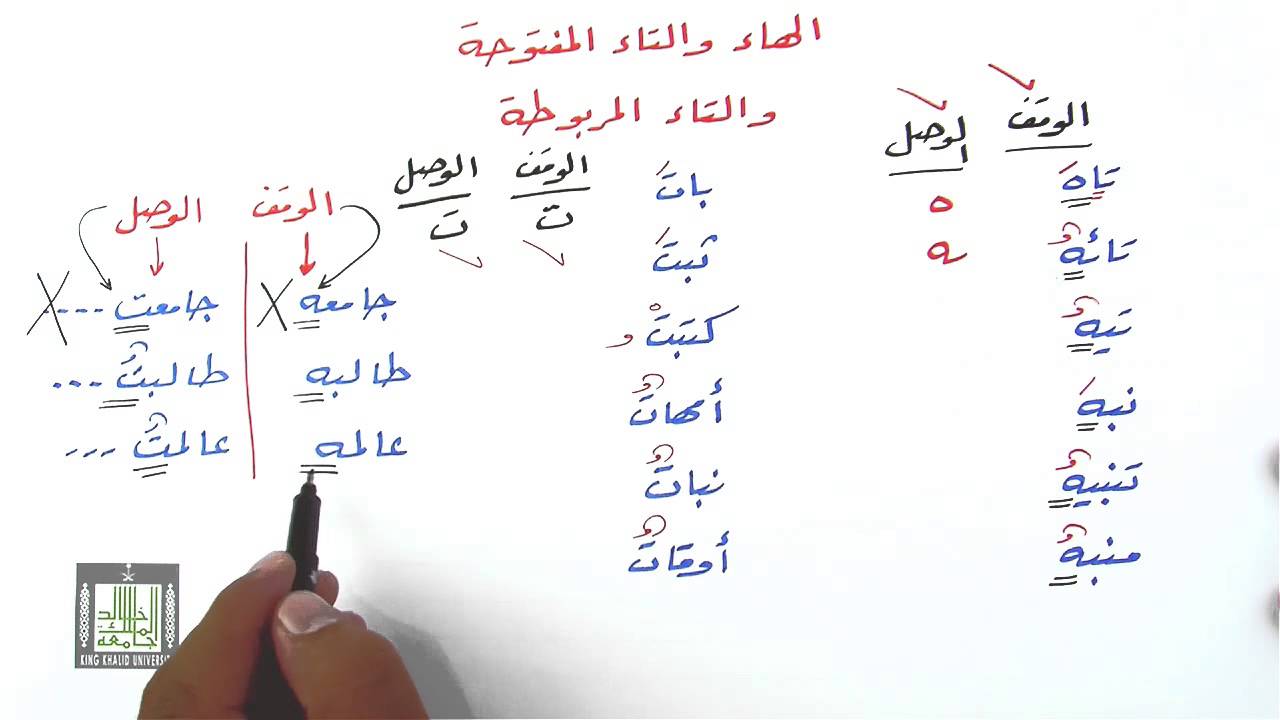 الهاء والتاء المفتوحة
والتاء المربوطة
الوقف الوصل
تاهَ ه
تائهٌ ـه
تيهٌ
نبهَ
تنبيهٌ
منبهٌ
الوقف الوصل
باتَ تْ تَ
ثبتَ
كتبتْ و
أمهاتٌ
نباتٌ
أوقاتٌ
الوقف الوصل
جامعه جامعت ----
طالبه طالبتٌ ---
عالمه عالمتٌ ---
جامعة الملك خالد
KING KHALID UNIVERSIT